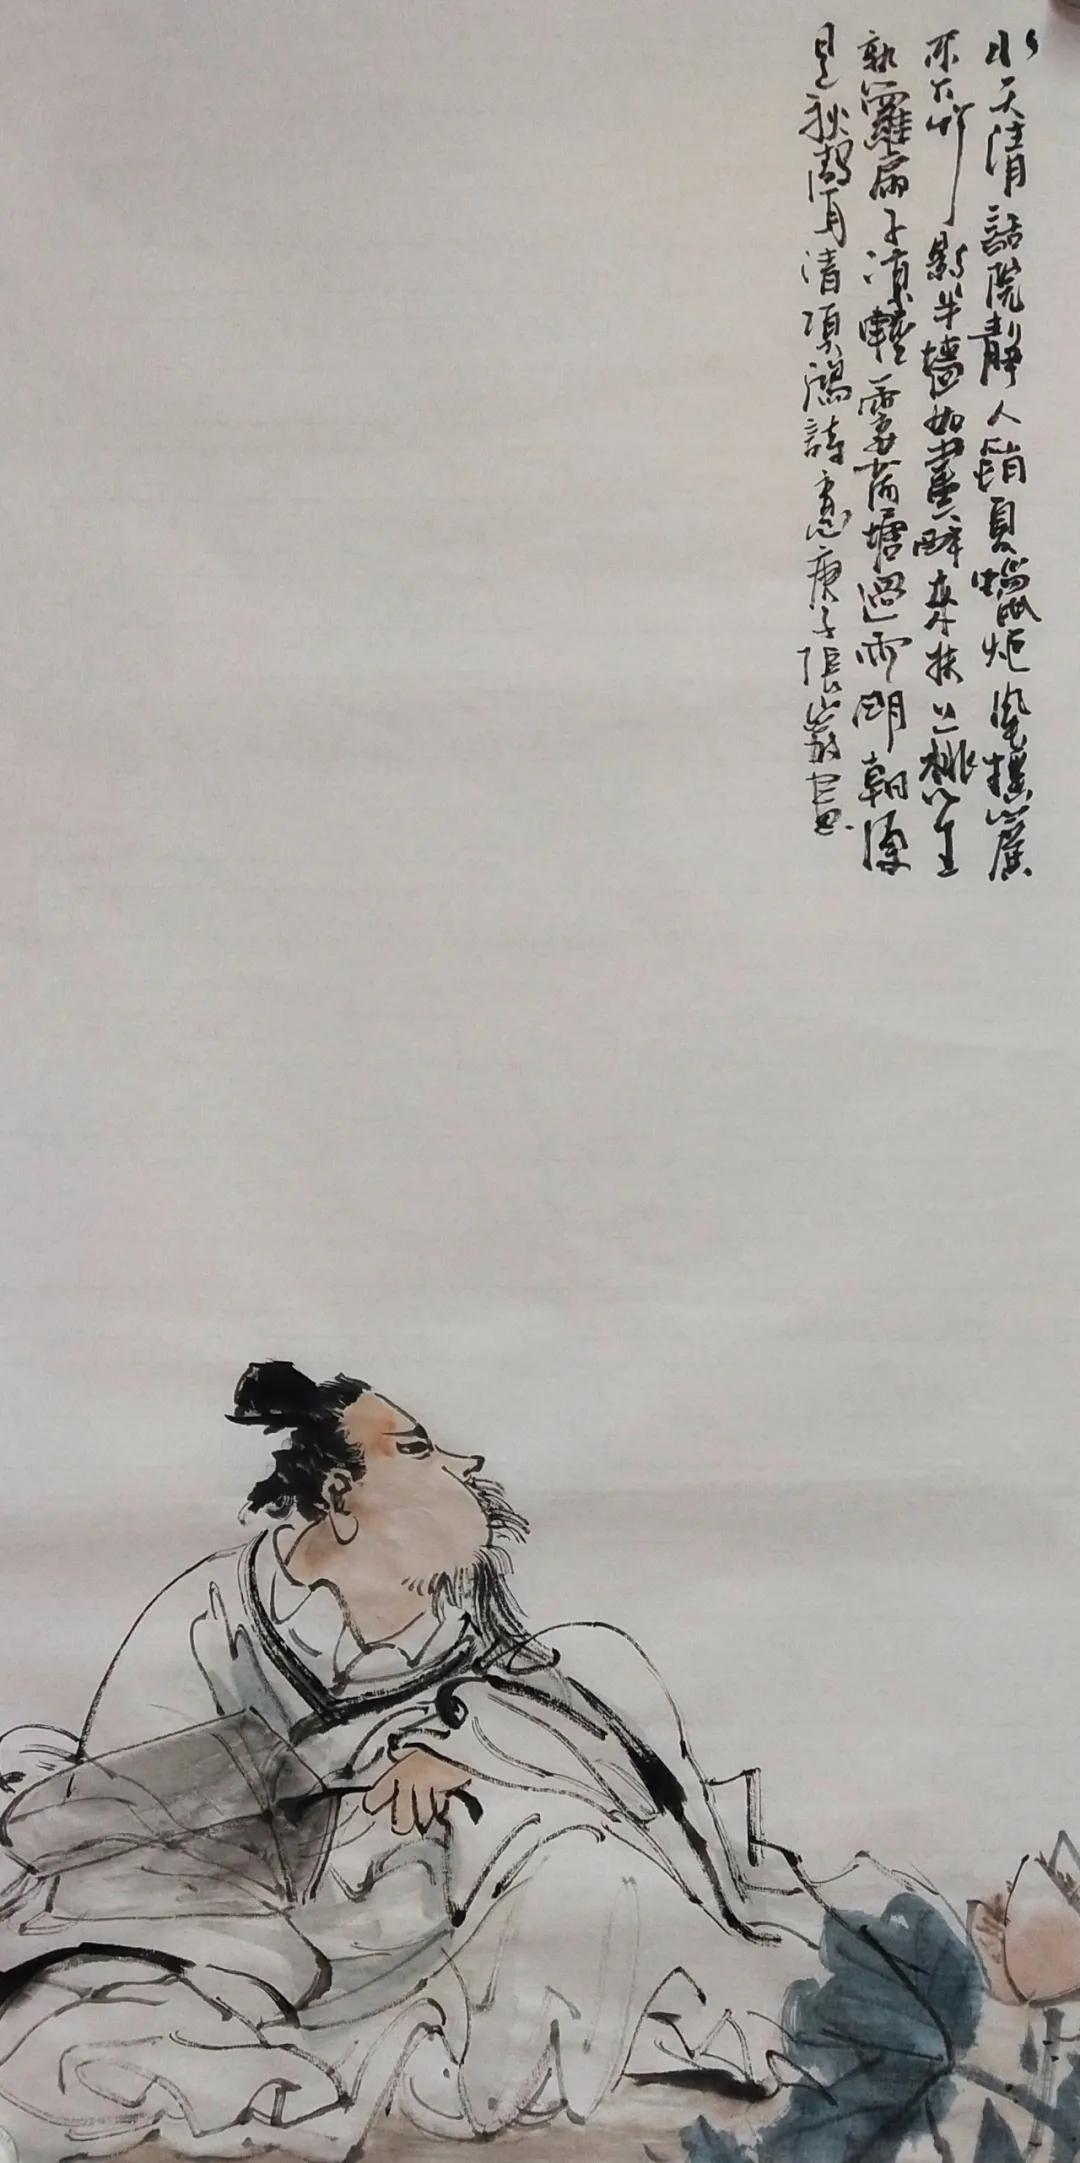 水天清話院靜人銷夏蠟炬風搖簾
不下竹影半墻如畫醉來扶上桃笙
熟羅扇子涼輕一霎荷塘過雨明朝便
是秋聲清項鴻詩意庚子張巖畫